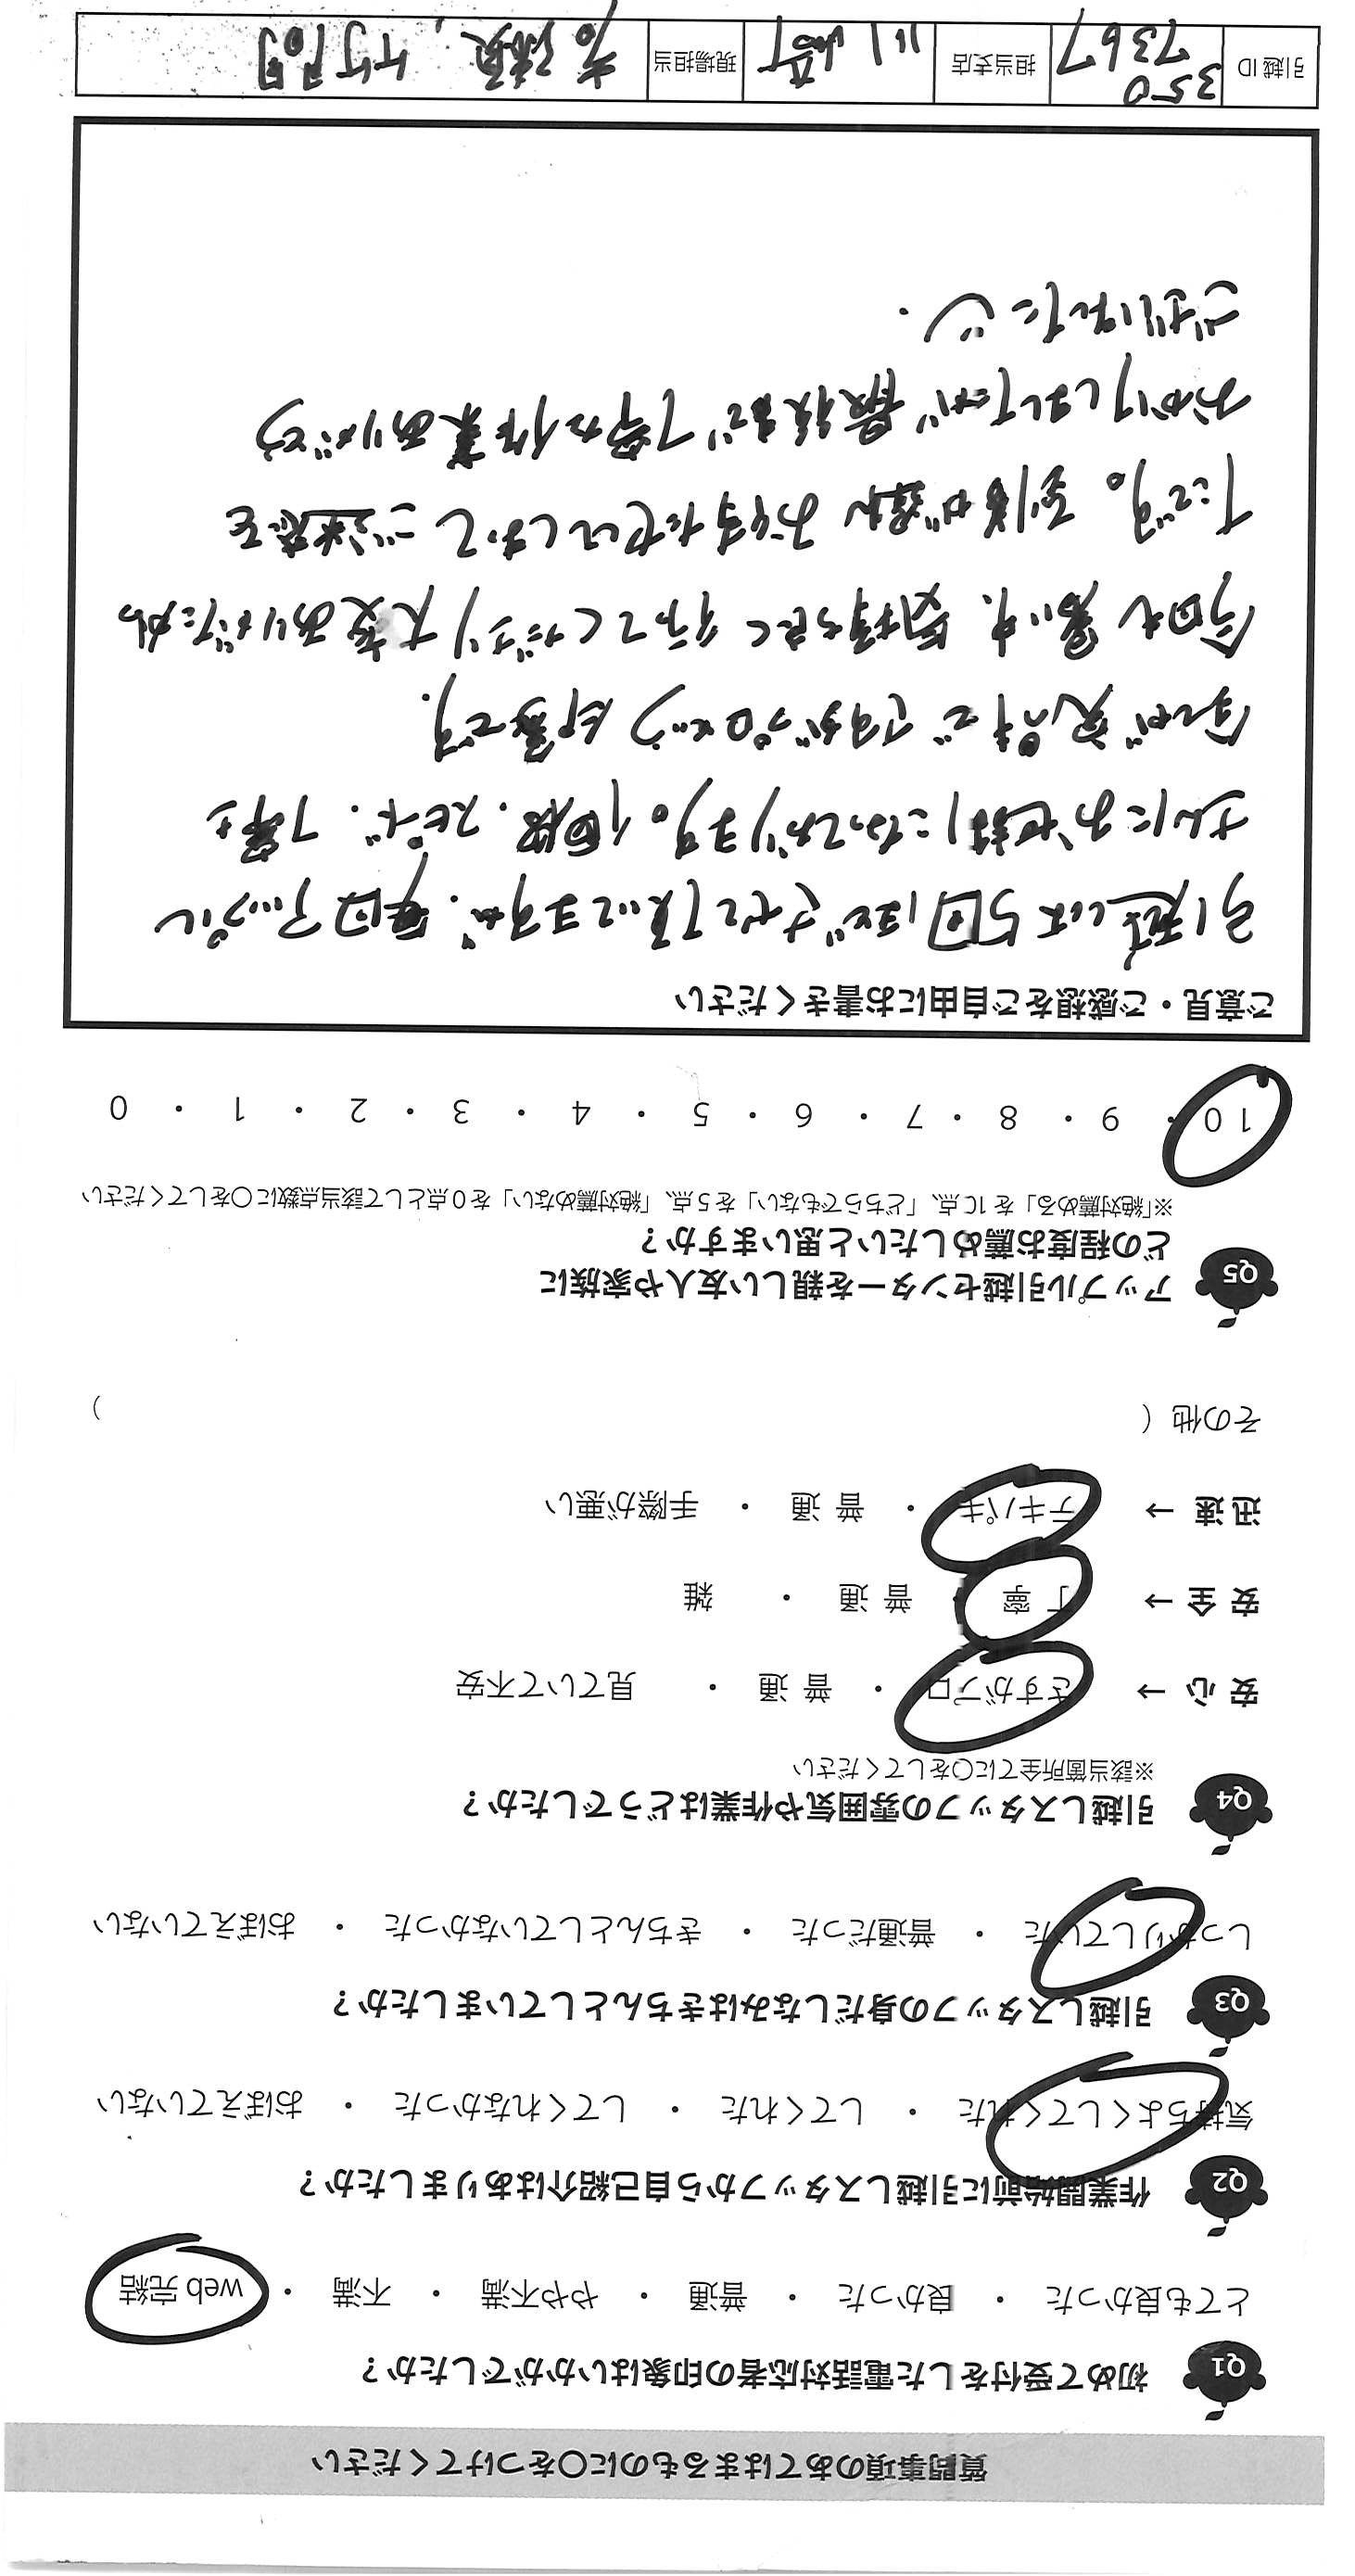 質問事項のあてはまるものに○をつけてください
Q1 初めて受付をした電話対応者の印象はいかがでしたか？
とても良かった ・ 良かった ・ 普通 ・ やや不満 ・ 不満 ・ web 完結
Q2 作業開始前に引越しスタッフから自己紹介はありましたか？
気持ちよくしてくれた ・ してくれた ・ してくれなかった ・ おぼえていない
Q3 引越しスタッフの身だしなみはきちんとしていましたか？
しっかりしていた ・ 普通だった ・ きちんとしていなかった ・ おぼえていない
Q4 引越しスタッフの雰囲気や作業はどうでしたか？
※該当箇所全てに○をしてください
安心→ さすがプロ ・ 普通 ・ 見ていて不安
安全→ 丁寧 ・ 普通 ・ 雑
迅速→ テキパキ ・ 普通 ・ 手際が悪い
その他（ ）
Q5 アップル引越センターを親しい友人や家族に
どの程度お薦めしたいと思いますか？
※「絶対薦める」を10点、「どちらでもない」を5点、「絶対薦めない」を0点として該当点数に○をしてください
10 ・ 9 ・ 8 ・ 7 ・ 6 ・ 5 ・ 4 ・ 3 ・ 2 ・ 1 ・ 0
ご意見・ご感想をご自由にお書きください
引越しは5回ほどさせて頂いてますが、毎回アップル
さんにお世話になっております。価格、スピード、丁寧さ
全てが完璧ですがプロという印象です。
今回も暑い中、気持ち良く行ってくださり大変ありがたかっ
たです。到着が遅れお待たせしまして ご迷惑を
おかけしましたが 最後まで丁寧な作業ありがとう
ございました
引越ID 350 7367 担当支店 川崎 現場担当